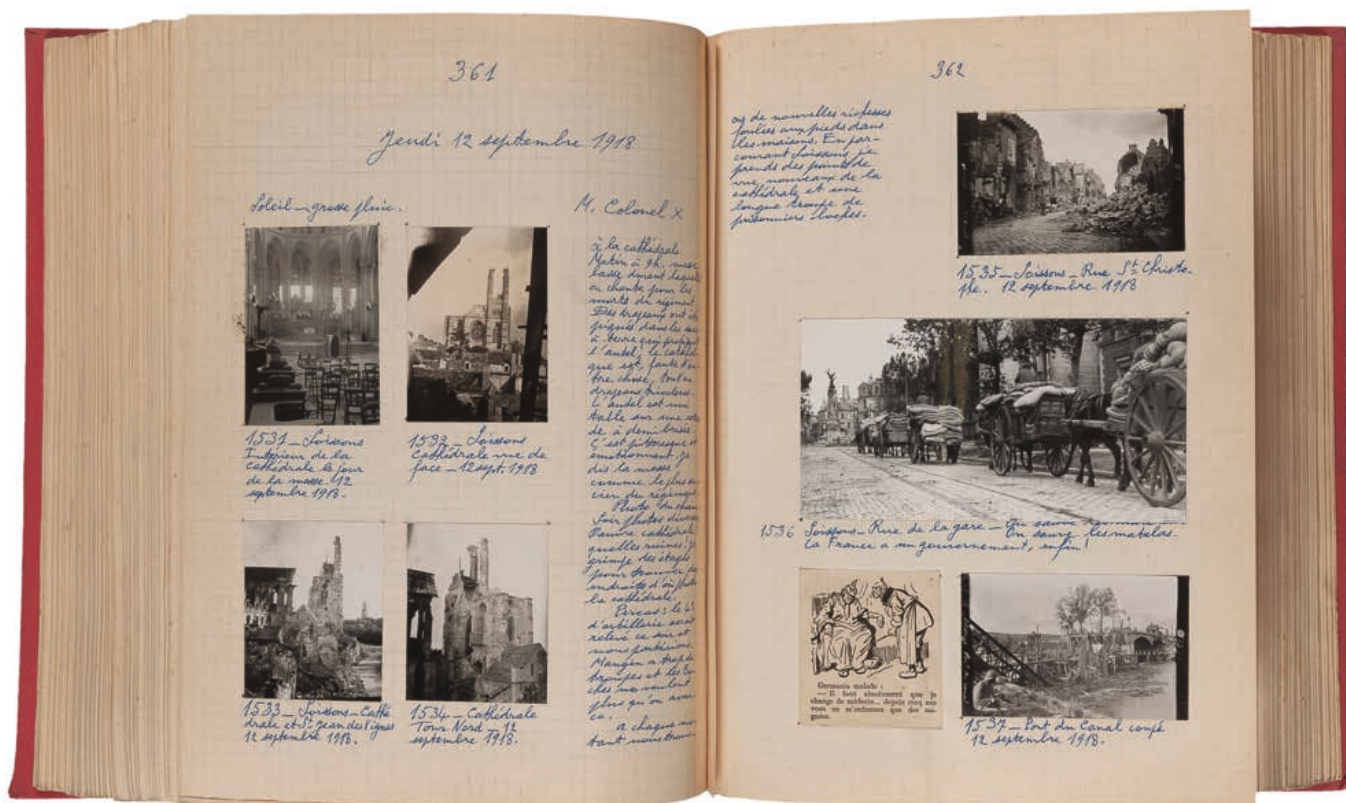 361
Jeudi 12 septembre 1918
Soleil _ grosse pluie.
1531 _ Soissons
Intérieur de la
cathédrale le jour
de la messe. 12
septembre 1918.
1532 _ Soissons
Cathédrale vue de
face _ 12 sept. 1918
1533 _ Soissons _ Cathé
drale et St Jean des Vignes
12 septembre 1918.
1534 _ Cathédrale
Tour Nord _ 12
septembre 1918.
M. Colonel X
à la cathédrale
Matin à 9h. messe
basse durant laquelle
on chante pour les
morts du régiment.
Des drapeaux ont été
piqués dans les sacs
à terre qui protègent
l'autel; le catafal
que est, faute d'au
tre chose, tout en
drapeaux tricolores.
L'autel est une
table sur une
de à demi brisée.
C'est pittoresque et
émotionnant. Je
dis la messe
comme le plus an
cien du régiment.
Photo
Soir photos diverses
Pauvre cathédrale,
quelles ruines! Je
grimpe des étages
pour trouver des
endroits d'où
la cathédrale.
: le
d'artillerie serait
relevé ce soir et
nous partirions.
Mangin a trop de
troupes et les Bo
ches ne veulent
plus qu'on avan
ce.
A chaque ins
tant nous trou-
362
ons de nouvelles richesses
foulées aux pieds dans
les maisons. En par-
courant Soissons je
prends des points de
vue nouveaux de la
cathédrale et une
longue troupe de
prisonniers
1535 _ Soissons _ Rue St Christo-
phe. 12 septembre 1918
1536 Soissons _ Rue de la gare _ On sauve
On sauve les matelas.
La France a un gouvernement, enfin!
Germania malade :
— Il faut absolument que je
change de médecin... depuis cinq ans
vous ne m'ordonnez que des sai-
gnées.
1537 _ Port du Canal coupé
12 septembre 1918.